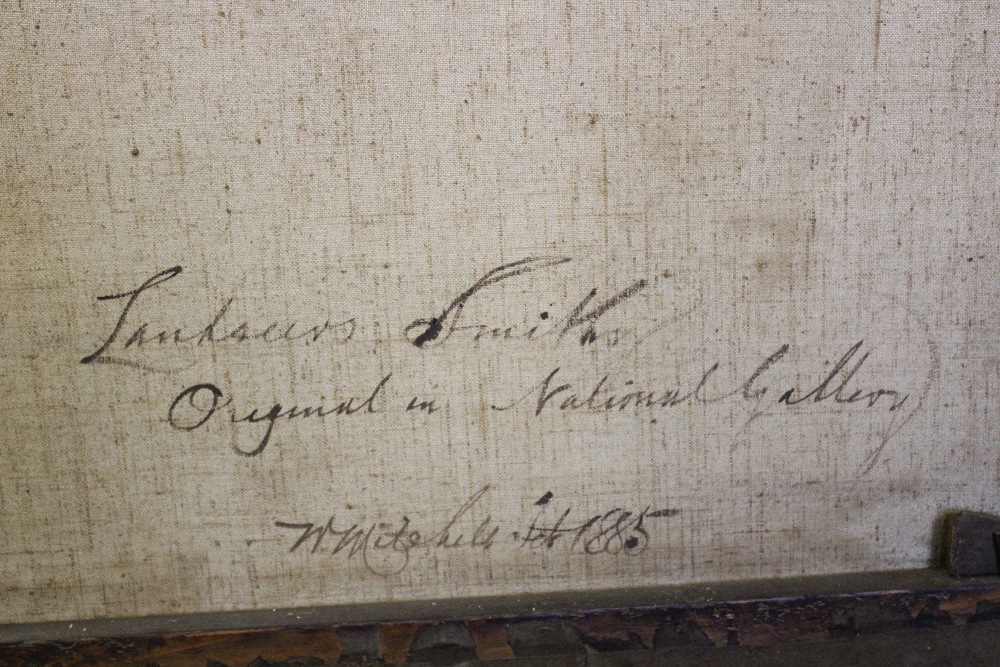 Landseers Smith
Original in National Gallery
W Mitchell 1885